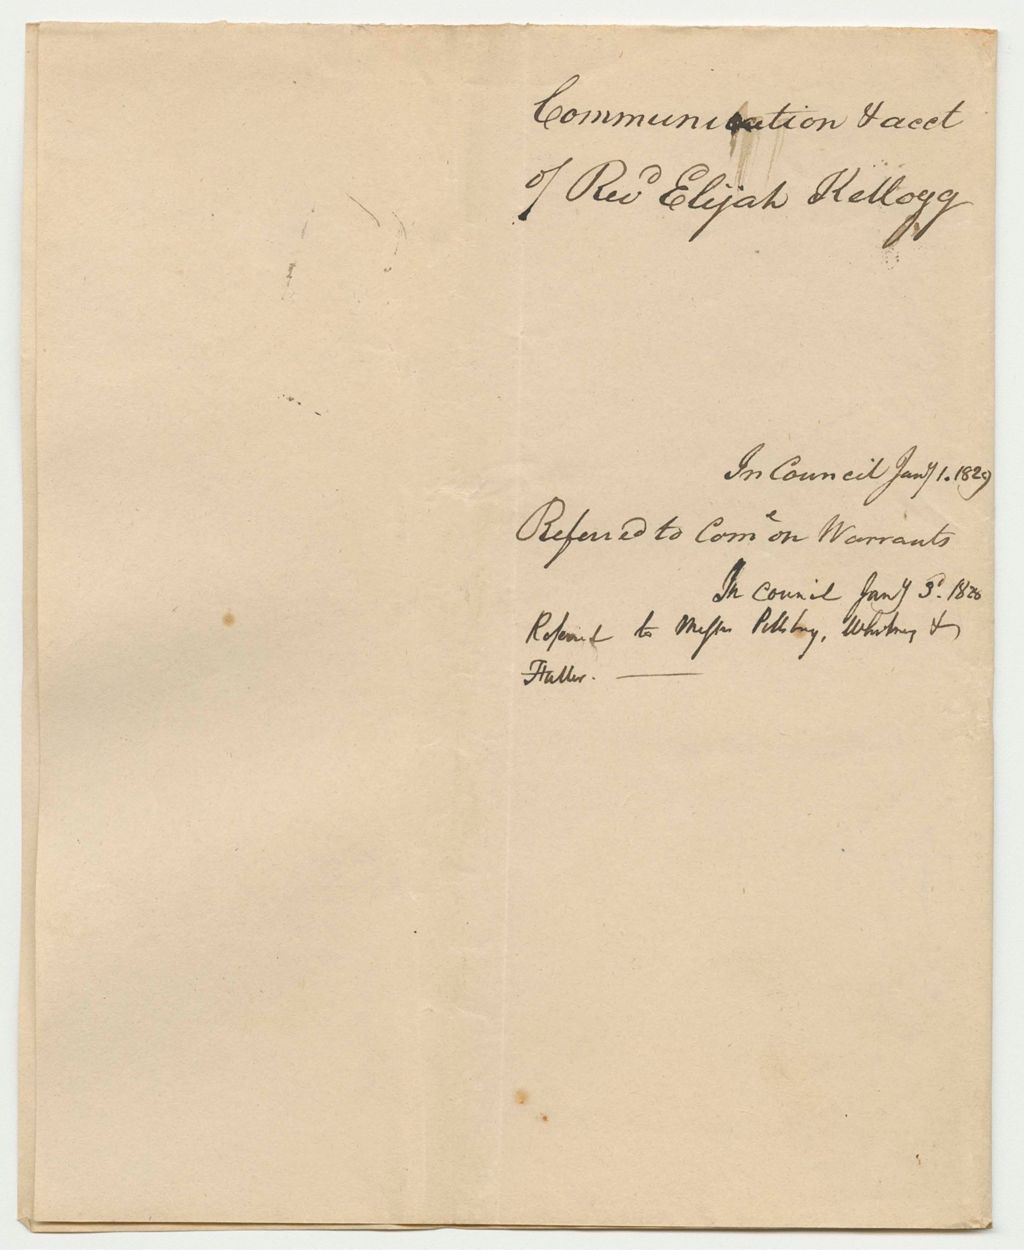 Communication & acct
of Revd Elijah Kellogg
In Council Jany 1. 1829
Referred to Come on Warrants
In Council Jany 3d. 1828
Referred to Messrs Pillsbury, Whitney &
Fuller.